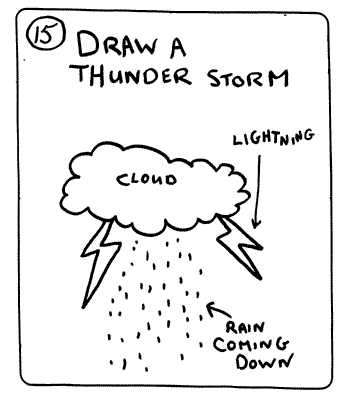 15
DRAW A
THUNDER STORM
LIGHTNING
CLOUD
RAIN
COMING
DOWN